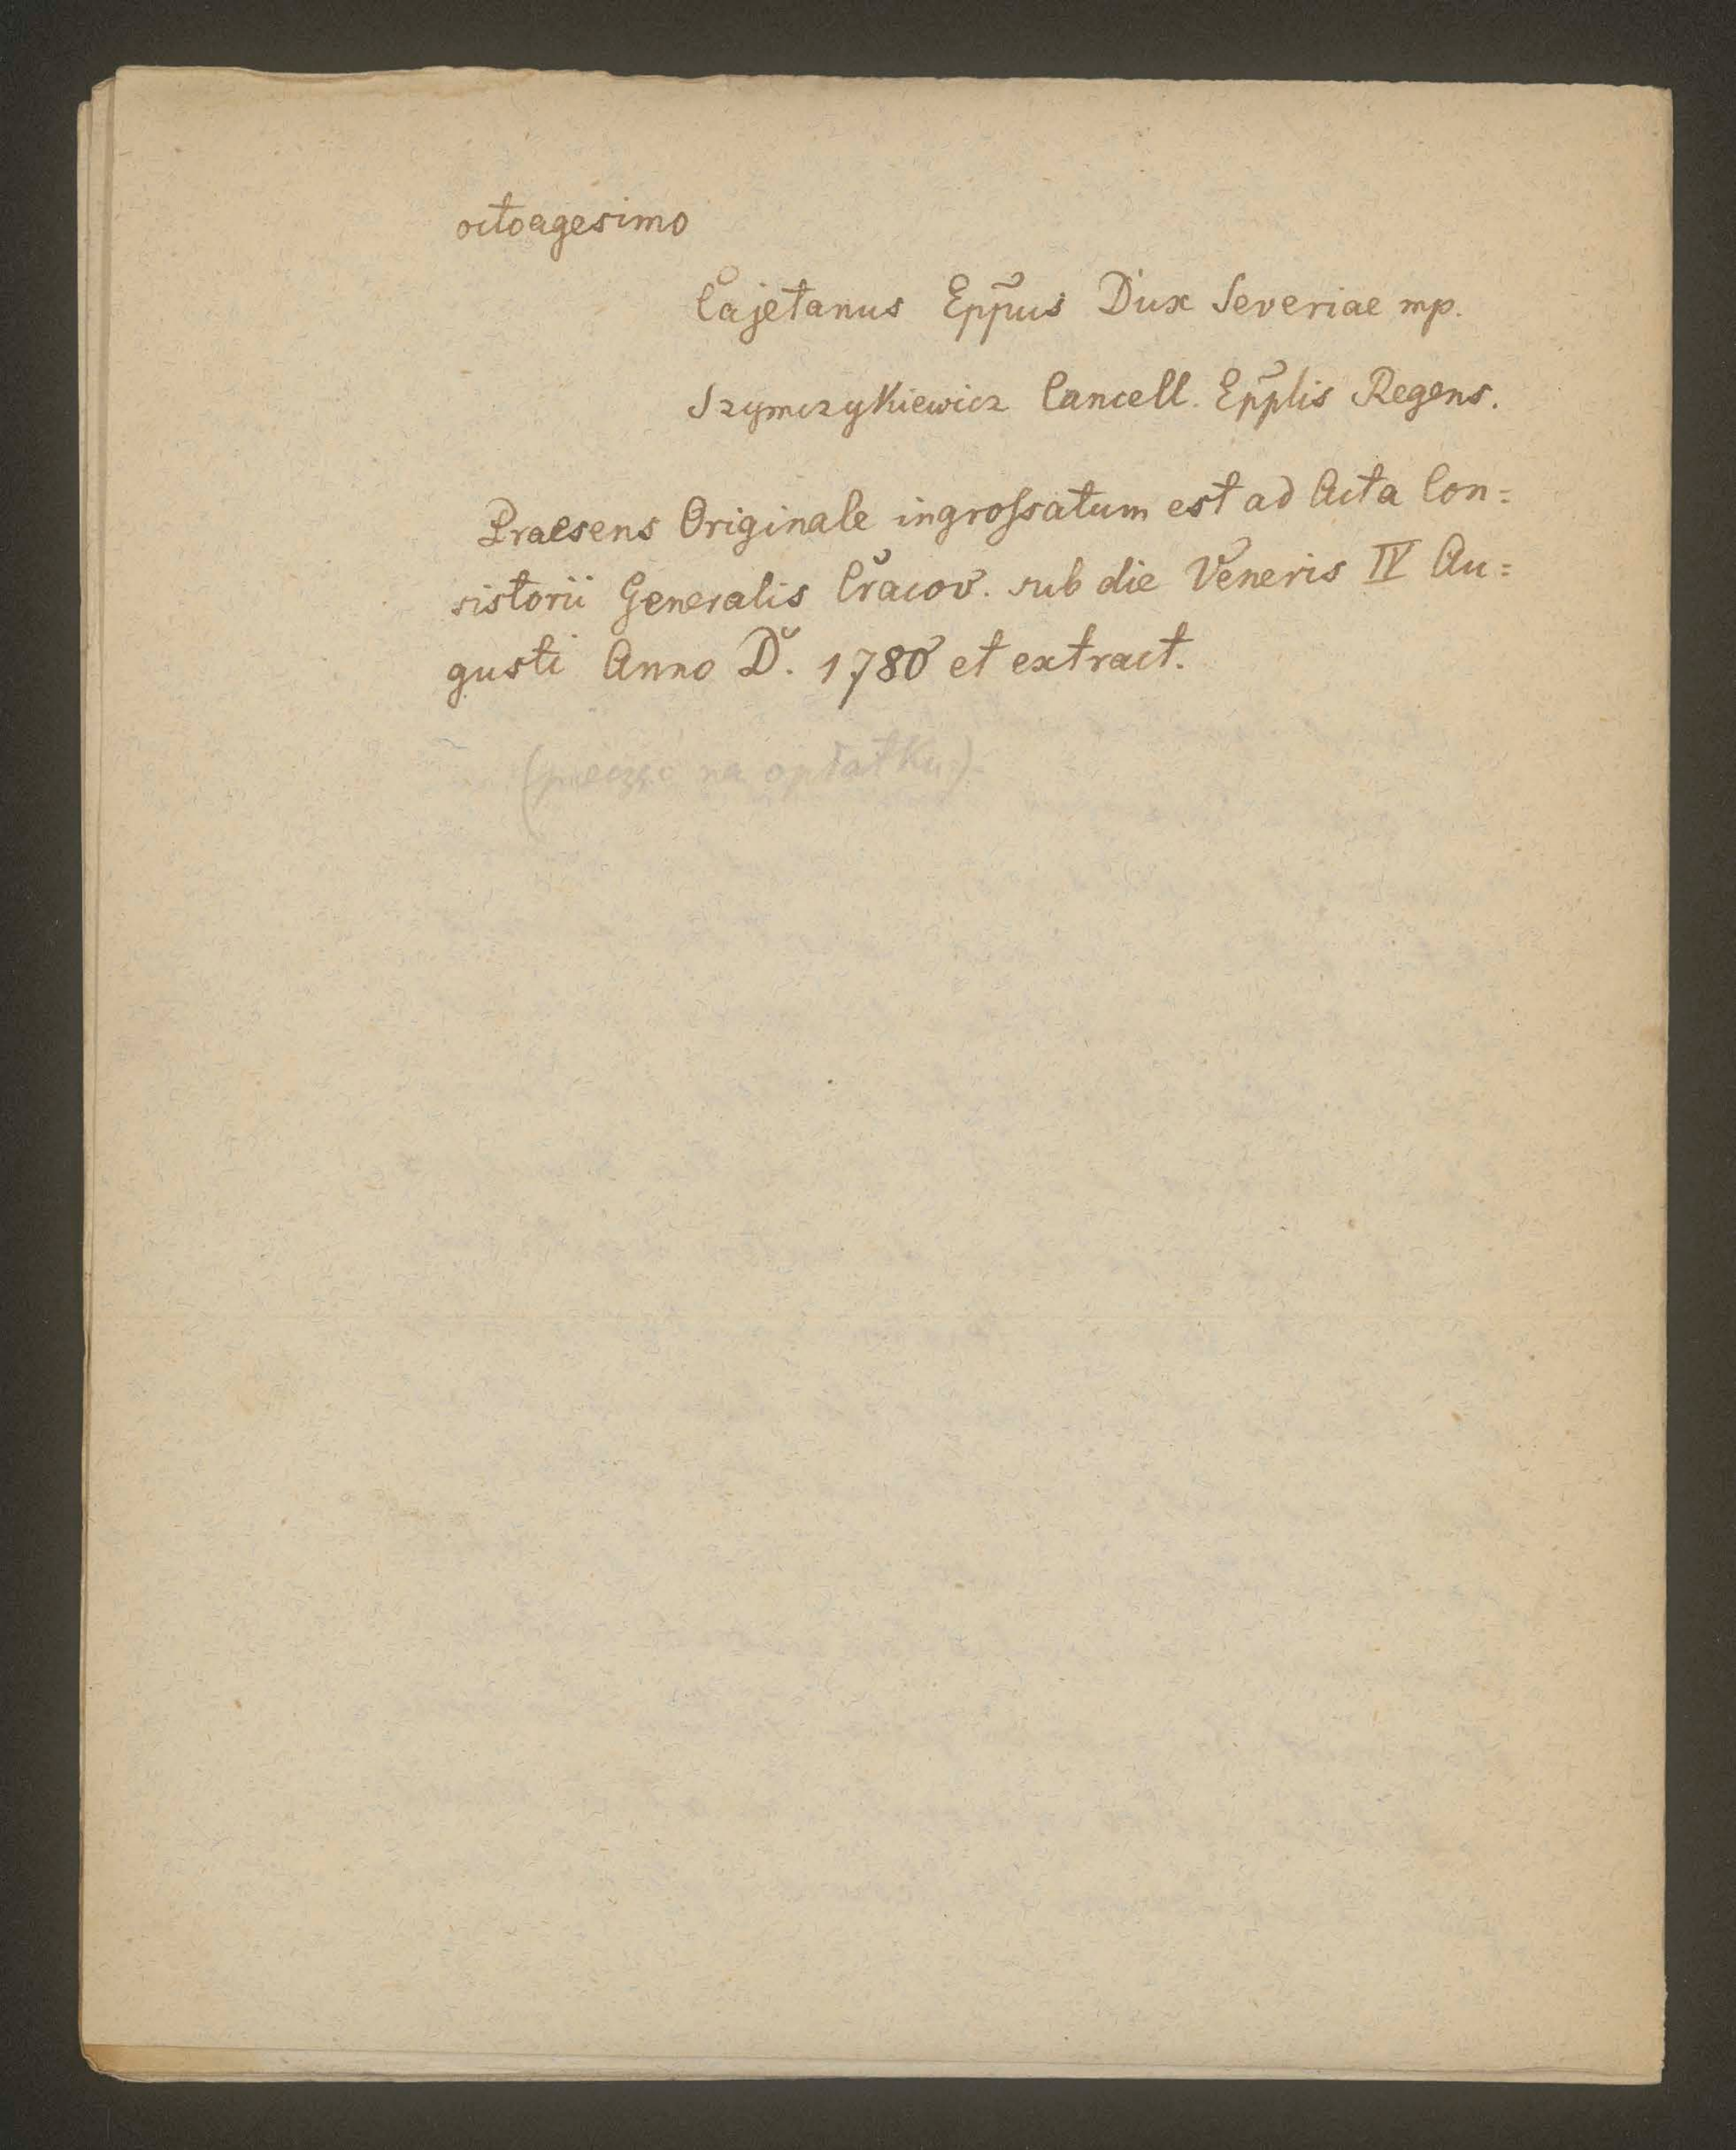 octoagesimo
Cajetanus Epp̃us Dux Severiae mp.
Szymczykiewicz Cancell. Epp̃lis Regens.
Praesens Originale ingroſsatum est ad Acta Con=
sistorii Generalis Cracov. sub die Veneris IV Au=
gusti Anno D. 1780 et extract.
(pieczęć na opłatku).